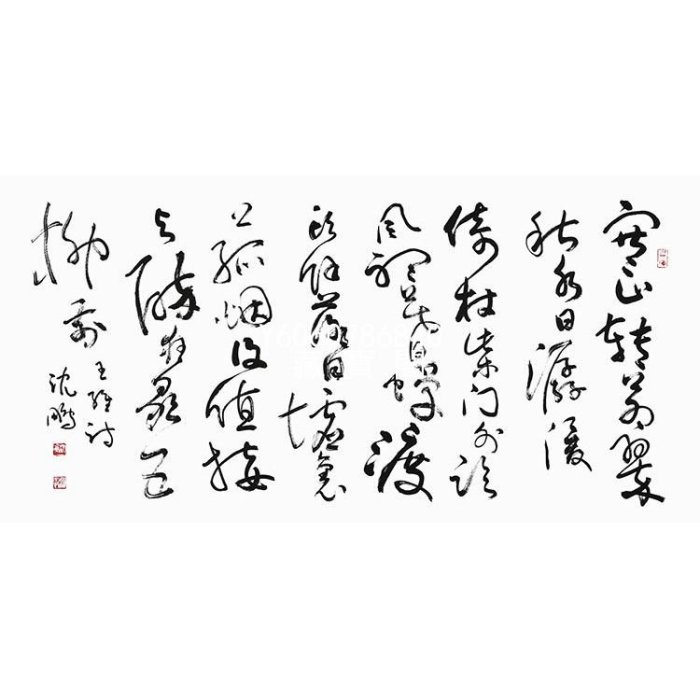 寒山转苍翠
秋水日潺湲
倚杖柴门外临
风听暮蝉渡
头余落日墟里
上孤烟复值接
舆醉狂歌五
柳前
王维诗
沈鹏